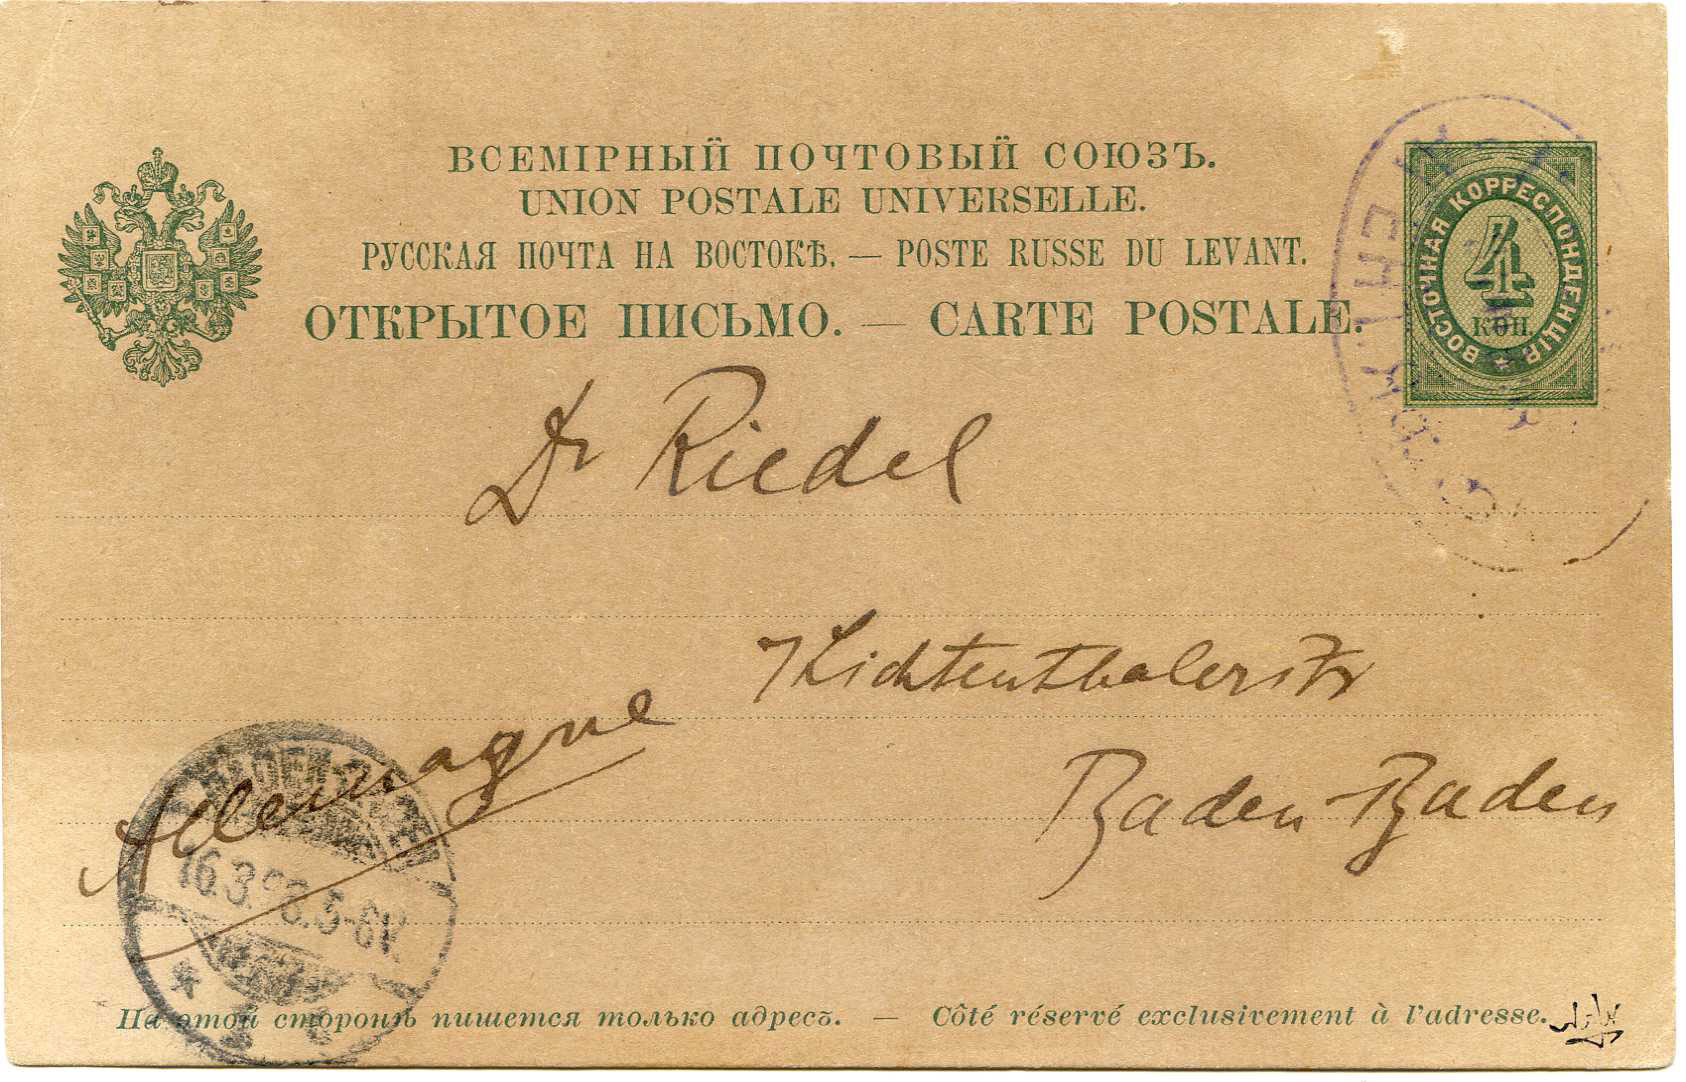 ВСЕМІРНЫЙ ПОЧТОВЫЙ СОЮЗЪ.
UNION POSTALE UNIVERSELLE.
РУССКАЯ ПОЧТА НА ВОСТОКѢ. — POSTE RUSSE DU LEVANT.
ОТКРЫТОЕ ПИСЬМО. — CARTE POSTALE.
ВОСТОЧНАЯ КОРРЕСПОНДЕНЦІЯ
4
КОП.
Dr Riedel
7 Lichtenthalerstr
Allemagne
Baden-Baden
BADEN-BADEN
16.3.98.5-6N.
На этой сторонѣ пишется только адресъ. — Côté réservé exclusivement à l'adresse.